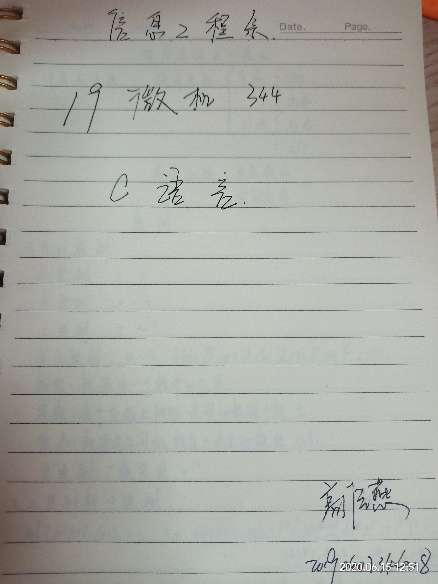 信息工程系
Date.
Page.
19 微机 344
C 语言.
2020.06.15 12:51